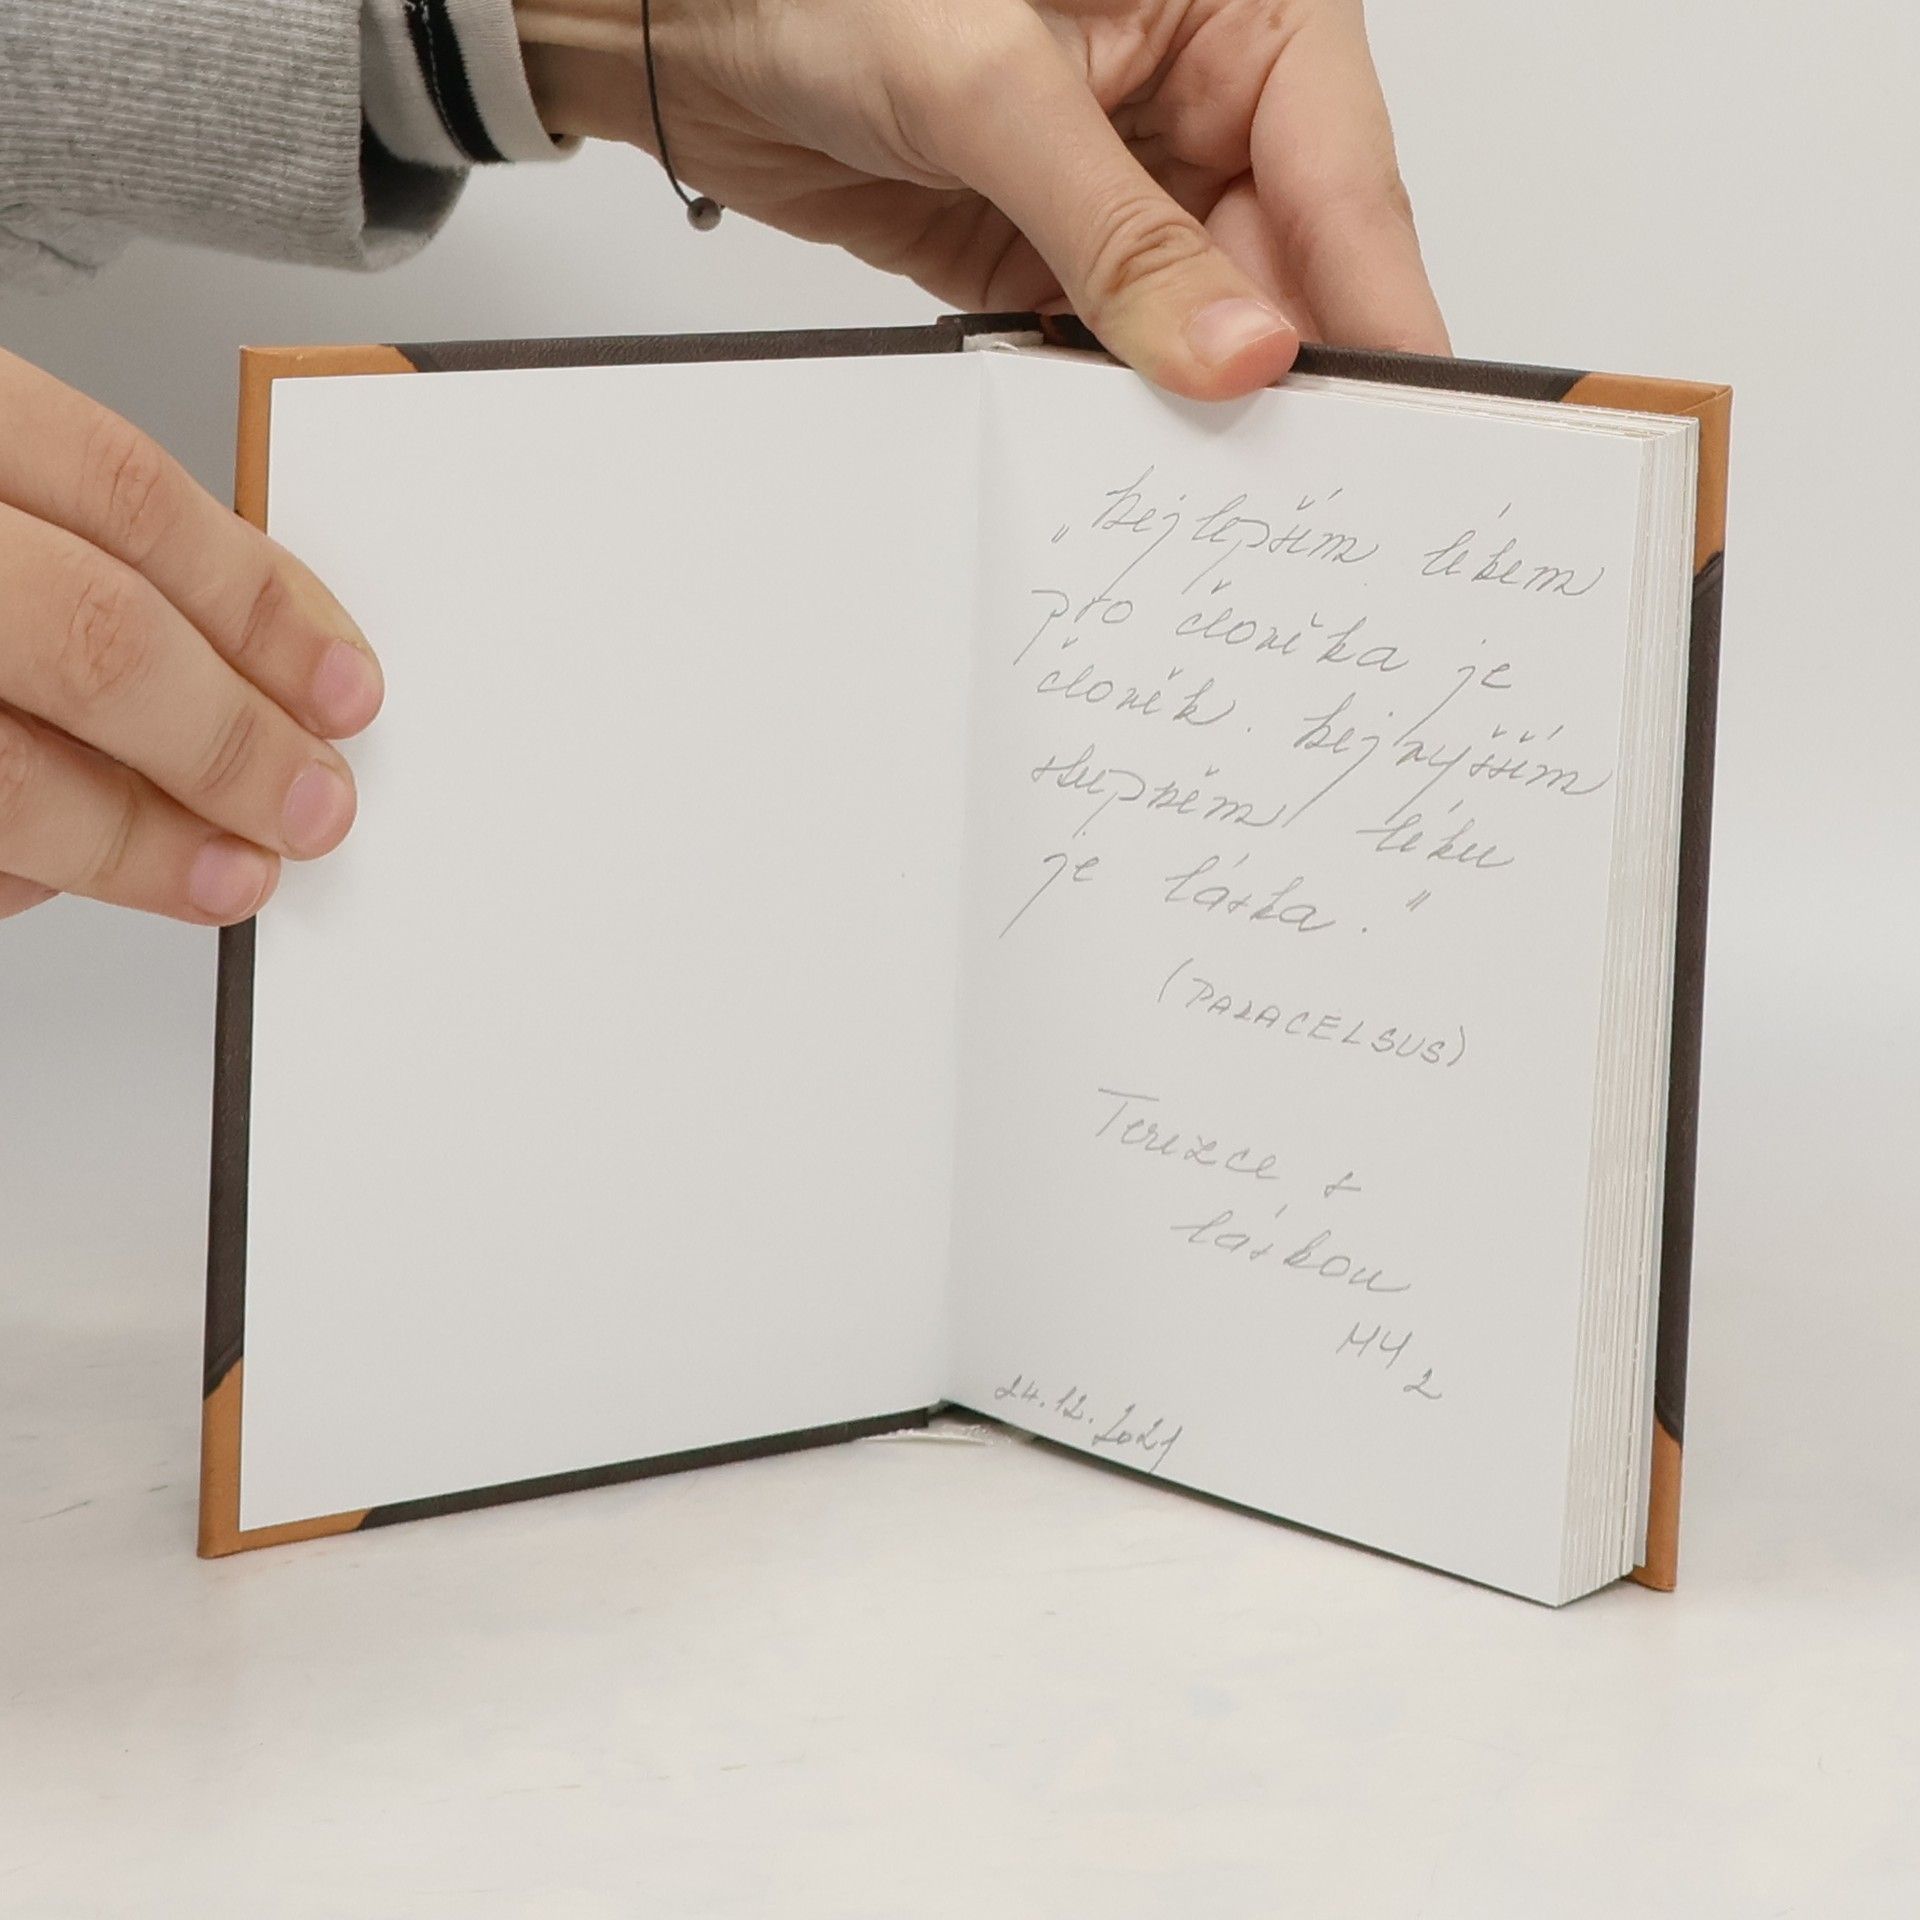 „Nejlepším lékem
pro člověka je
člověk. Nejvyšším
stupněm léku
je láska."
(PARACELSUS)
Terezce s
láskou
MY 2
24.12.2021